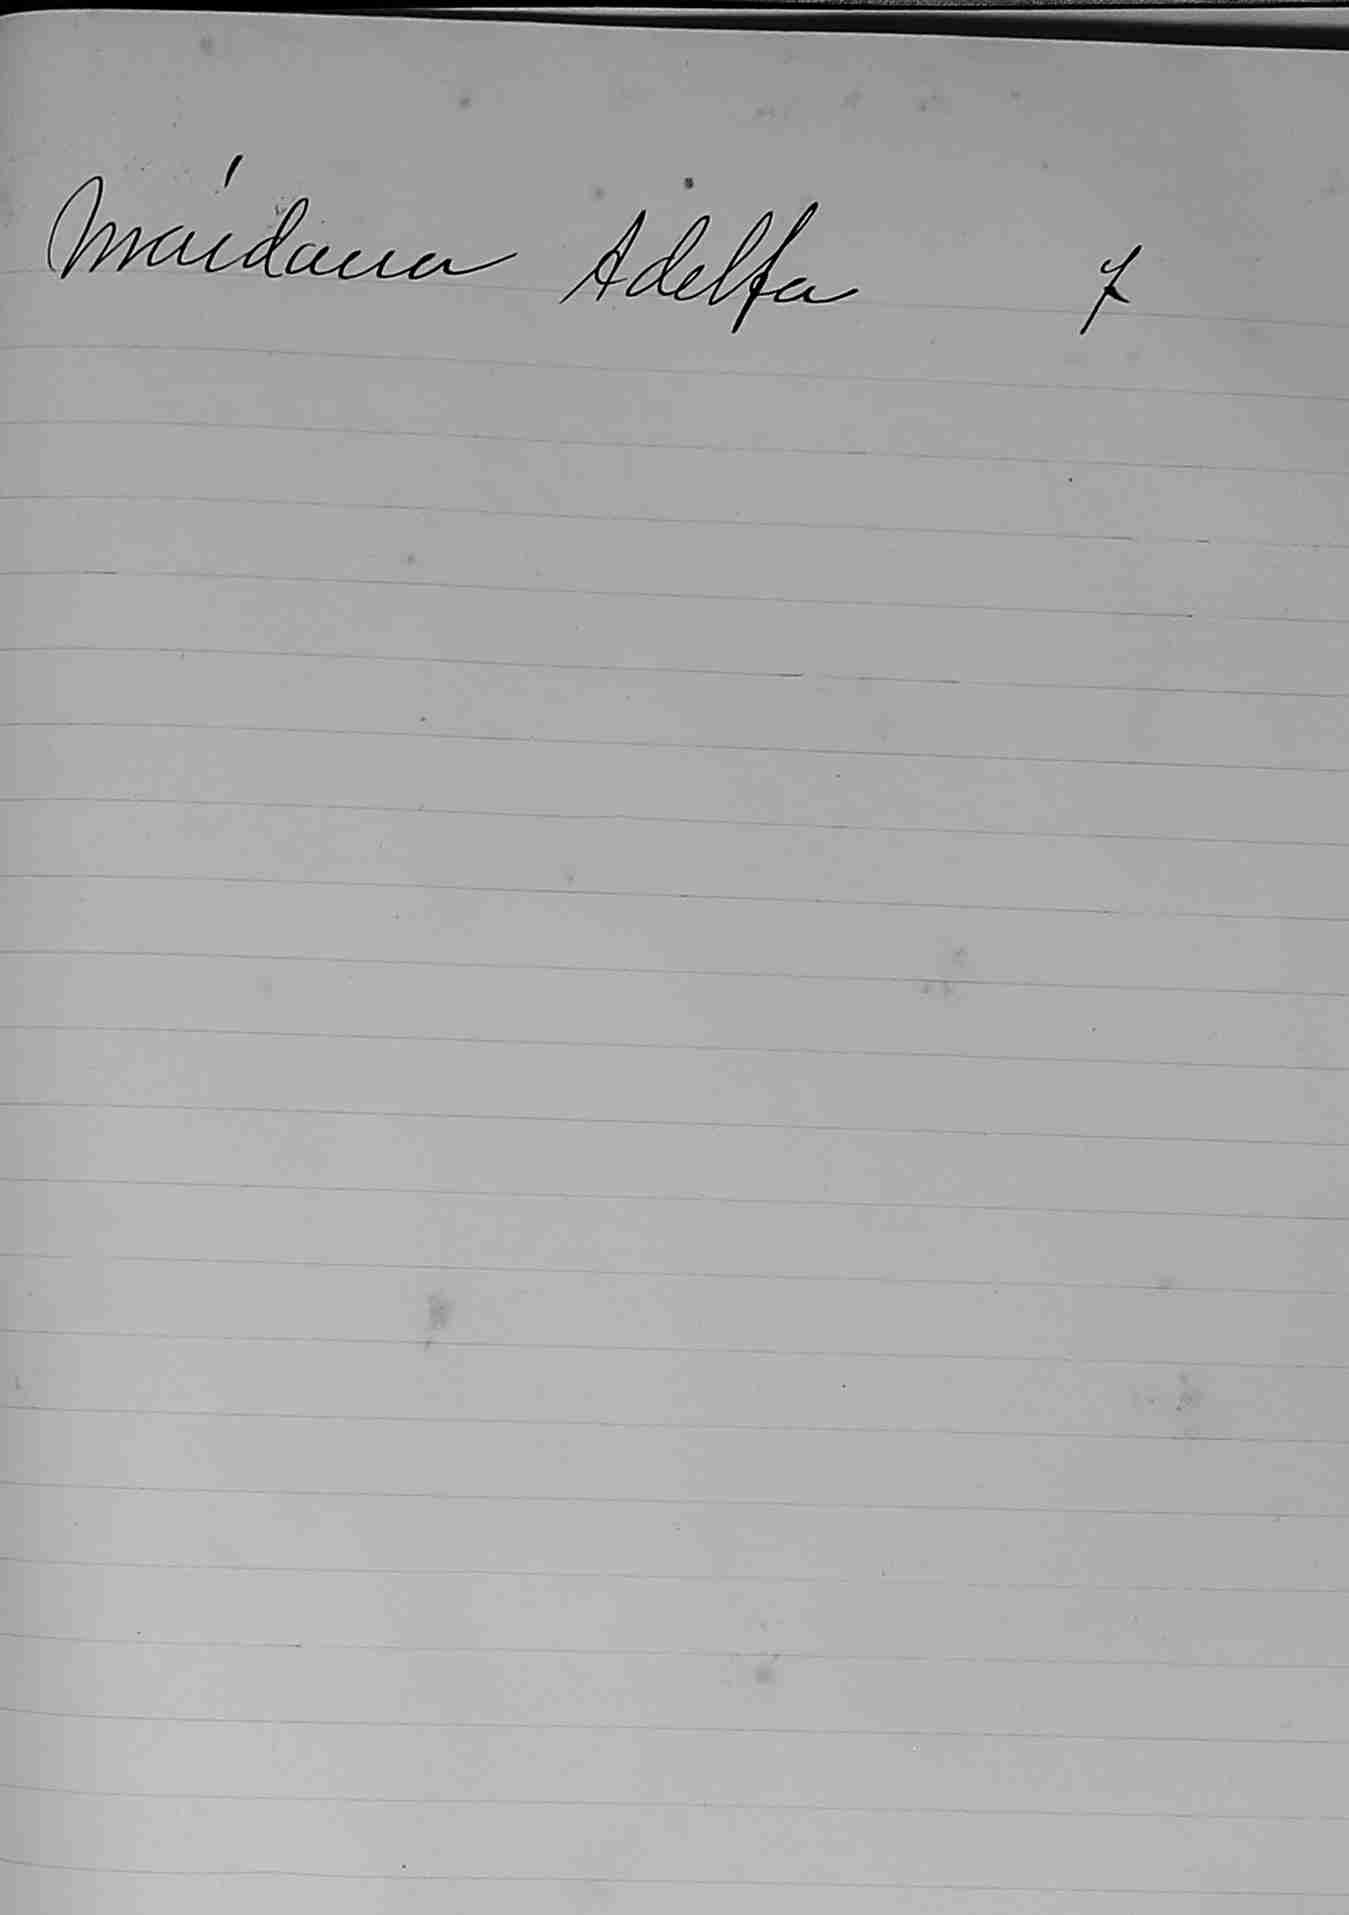 Maidana Adelfa 7